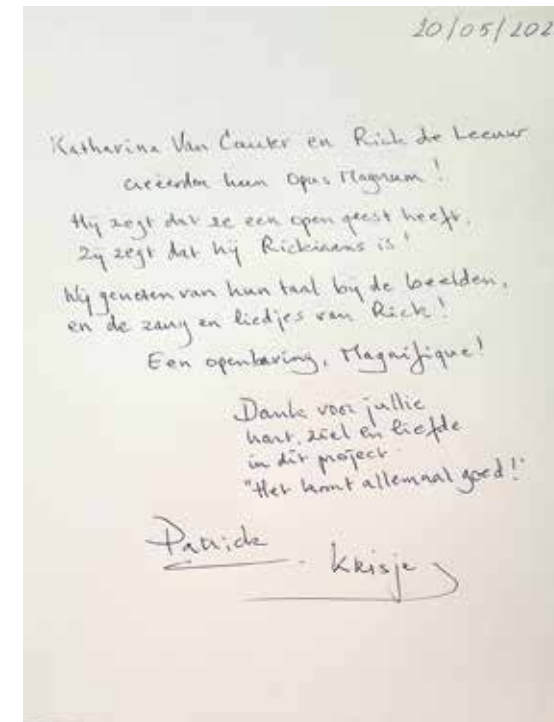 20/05/202
Katharina Van Cauter en Rick de Leeuw
creëerden hun Opus Magnum!
Hij zegt dat ze een open geest heeft,
Zij zegt dat hij Rickiaans is!
Wij genoten van hun taal bij de beelden,
en de zang en liedjes van Rick!
Een openbaring, Magnifique!
Dank voor jullie
hart, ziel en liefde
in dit project.
"Het komt allemaal goed!"
Patrick
Krisje